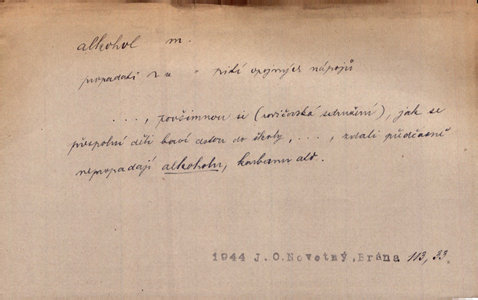 alkohol m.
propadati
pití opojných nápojů
..., povšimnou si (rodičovská sdružení), jak se
přespolní děti baví cestou do školy, ..., zdali předčasně
nepropadají alkoholu, karbanu atd.
1944 J.O.Novotný, Brána 113, 33.